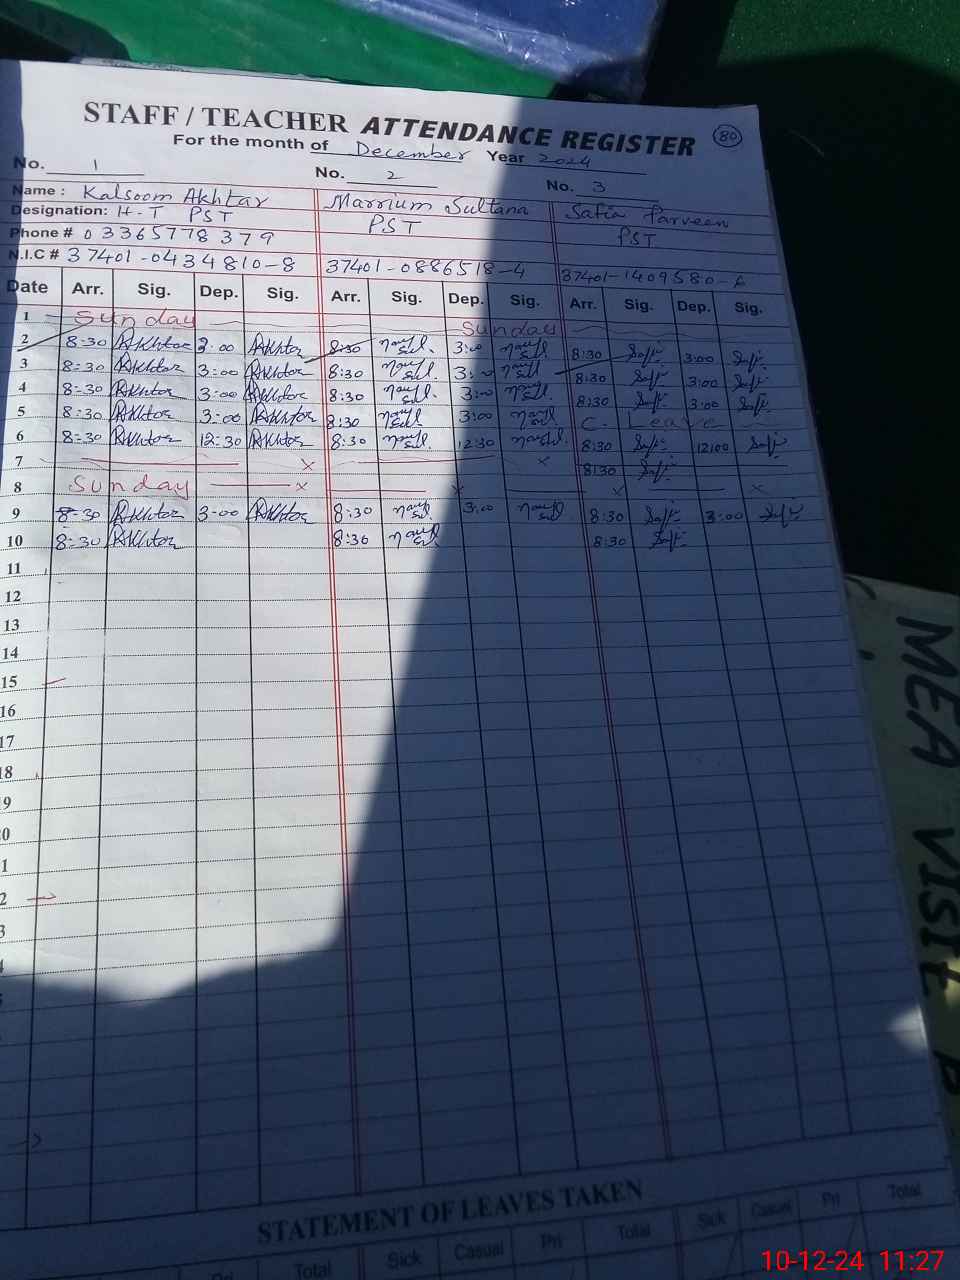 STAFF / TEACHER ATTENDANCE REGISTER 80
For the month of December Year 2024
No. 1 No. 2 No. 3
Name : Kalsoom Akhtar Marrium Sultana Safia Parveen
Designation: H-T PST PST PST
Phone # 03365778379
N.I.C # 37401-0434810-8 37401-0886518-4 37401-1409580-6
Date Arr. Sig. Dep. Sig. Arr. Sig. Dep. Sig. Arr. Sig. Dep. Sig.
1 Sunday Sunday
2 8:30 Akhtar 3:00 Akhtar 8:30 3:00 8:30 Saf 3:00 Saf
3 8:30 Akhtar 3:00 Akhtar 8:30 3:00 8:30 Saf 3:00 Saf
4 8:30 Akhtar 3:00 Akhtar 8:30 3:00 8:30 Saf 3:00 Saf
5 8:30 Akhtar 3:00 Akhtar 8:30 3:00 C. Leave
6 8:30 Akhtar 12:30 Akhtar 8:30 12:30 8:30 Saf 12:00 Saf
7 × × 8:30 Saf
8 Sunday × × × ×
9 8:30 Akhtar 3:00 Akhtar 8:30 3:00 8:30 Saf 3:00 Saf
10 8:30 Akhtar 8:30 8:30 Saf
11
12
13
14
15
16
17
18
9
0
1
2
3
4
STATEMENT OF LEAVES TAKEN
Pri Total Sick Casual Pri Total Sick Casual Pri Total
MEA VISIT P
10-12-24 11:27